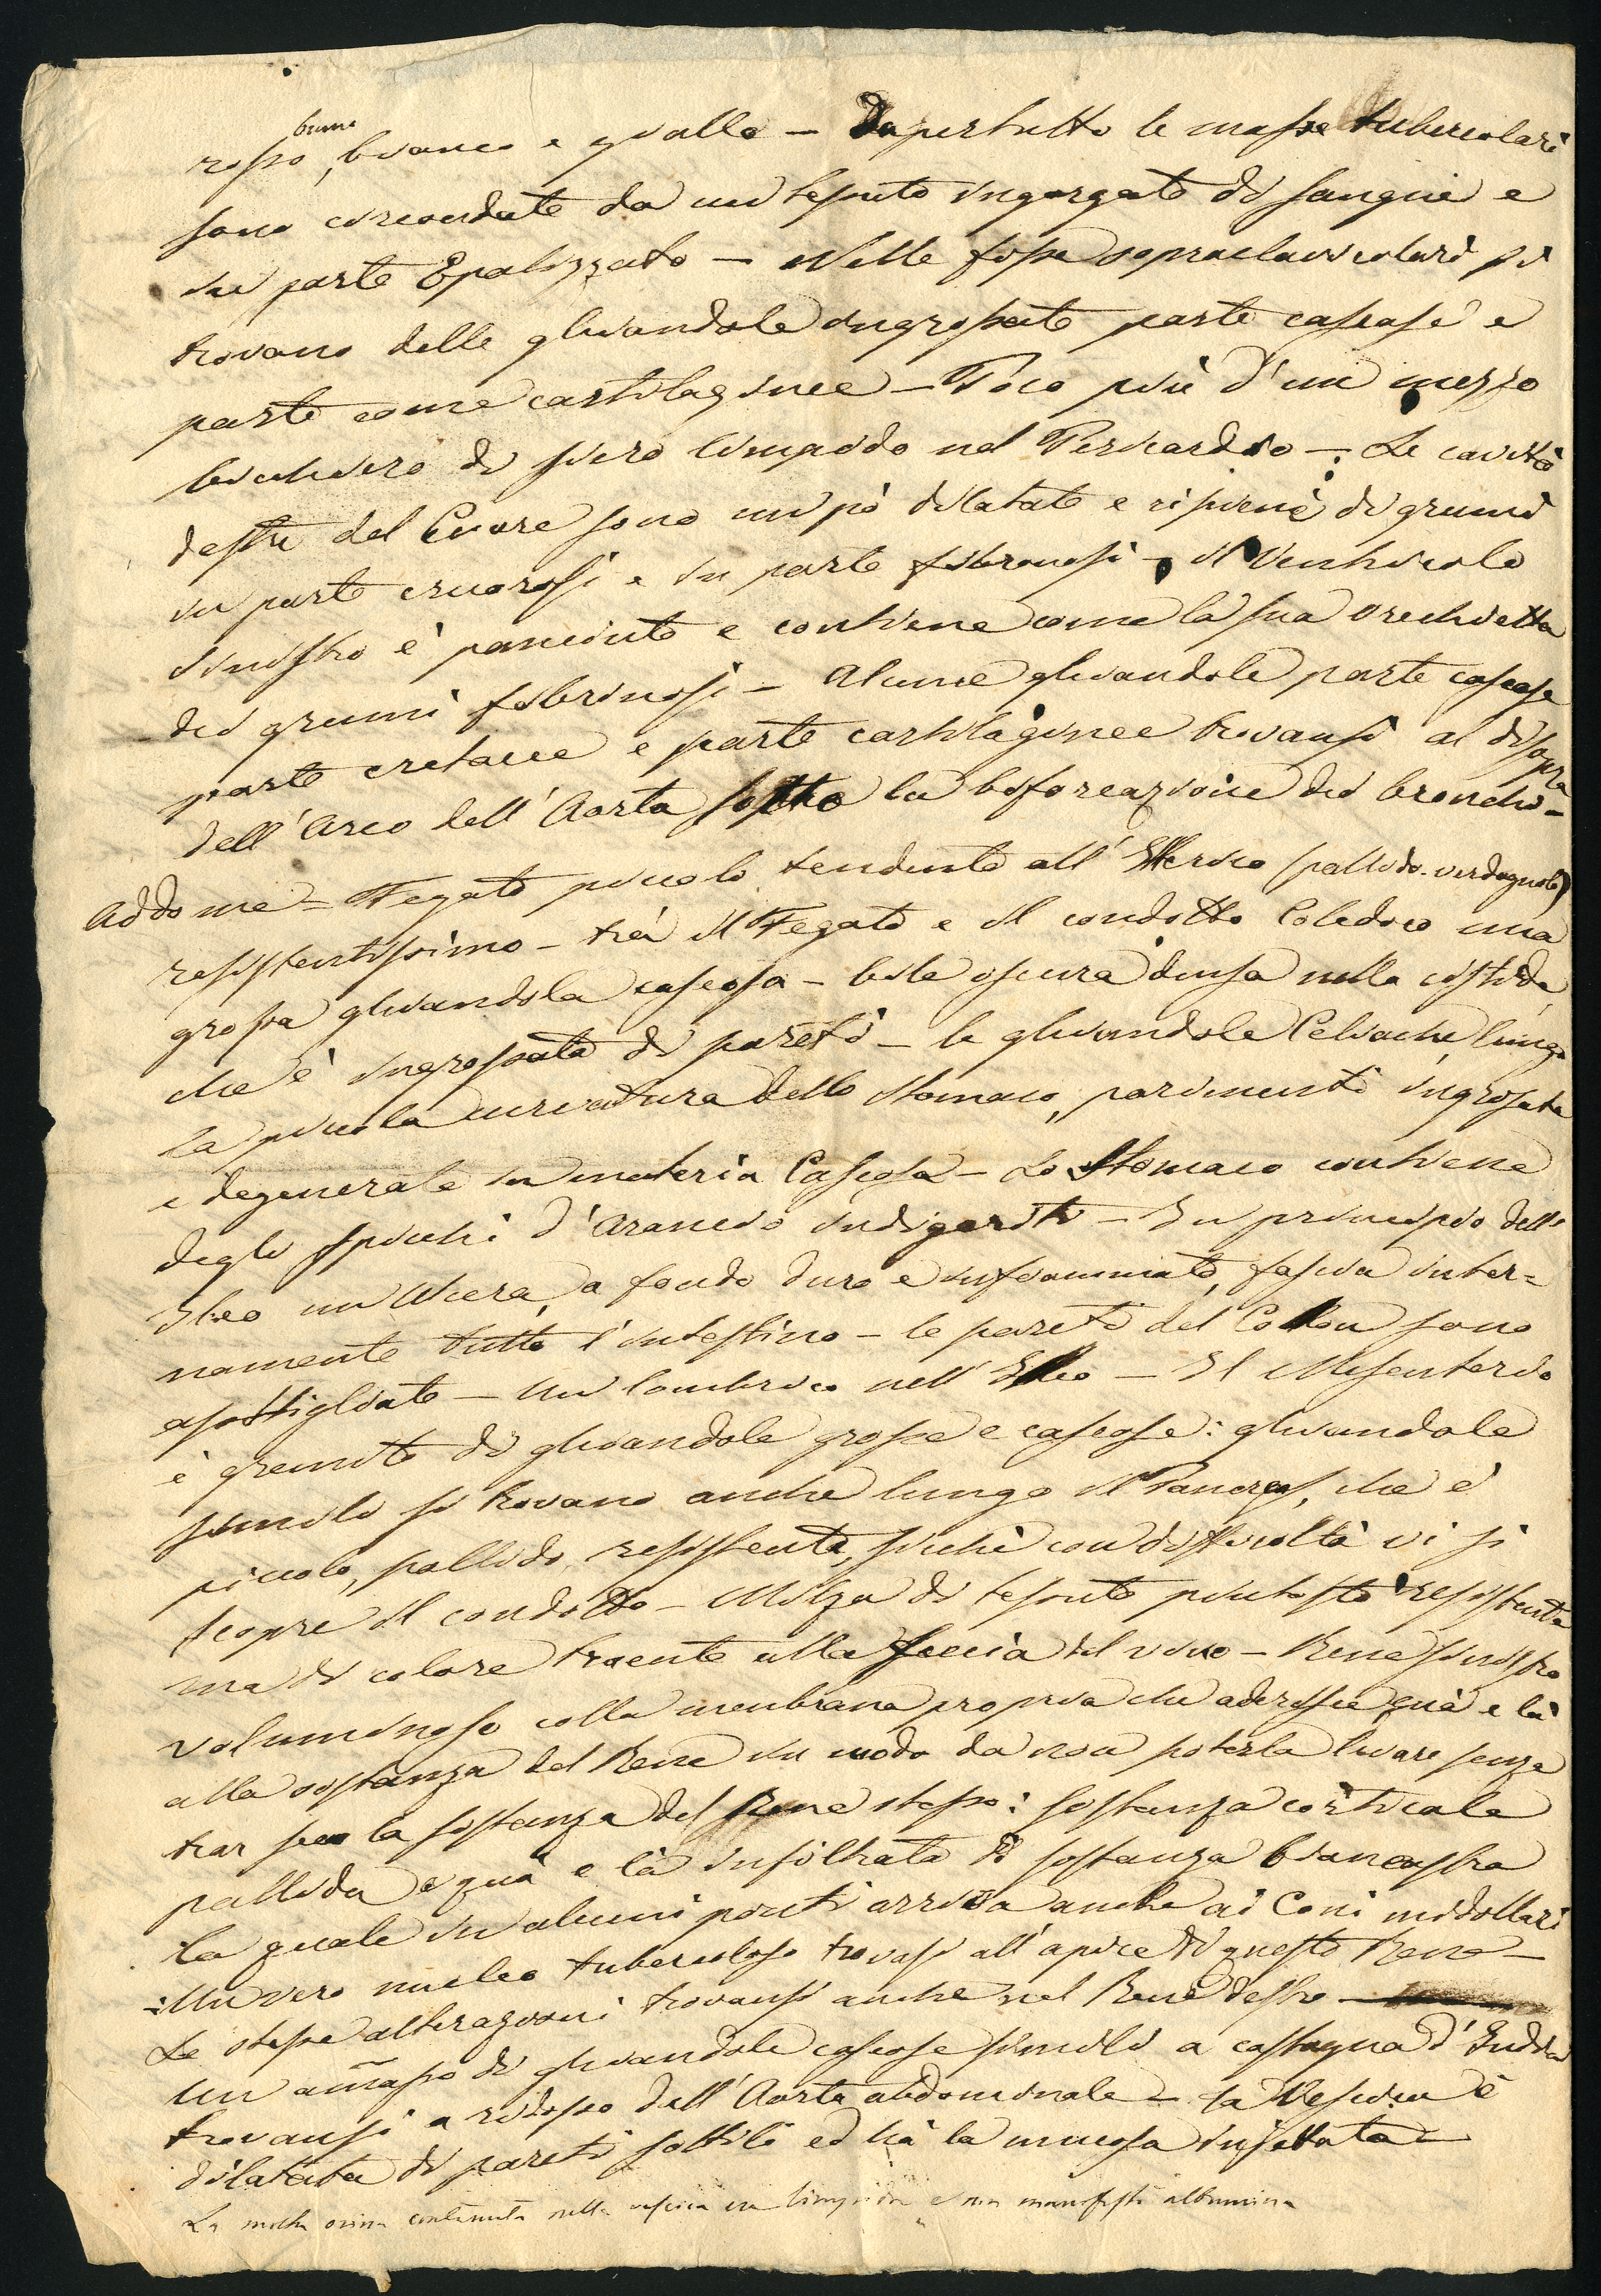 bruno
rosso, bianco e giallo – Dapertutto le masse tubercolari
sono circondate da un tessuto ingorgato di sangue e
in parte Epatizzato – Nelle fosse sopraclavicolari si
trovano delle ghiandole ingrossate parte caseose e
parte come cartilaginee – Poco più d'un mezzo
bicchiere di siero limpido nel Pericardio – Le cavità
destre del Cuore sono un pò dilatate e ripiene di grumi
in parte cruorosi e in parte fibrinosi – il Ventricolo
sinistro è panciuto e contiene come la sua orecchietta
dei grumi fibrinosi – Alcune ghiandole parte caseose
parte cretacee e parte cartilaginee trovansi al disopra
dell'Arco dell'Aorta sotto la biforcazione dei bronchi –
Addome – Fegato piccolo tendente all'Itterico (pallido-verdognolo)
resistentissimo – trà il Fegato e il condotto Coledoco una
grossa ghiandola caseosa – bile oscura densa nella cistide,
che è ingrossata di pareti – le ghiandole Celiache, lungo
la piccola curvatura dello stomaco, parimenti ingrossate
e degenerate in materia Caseosa – Lo Stomaco contiene
degli spicchi d'Arancio indigeriti – In principio dell'
Ileo un'Ulcera, a fondo duro e infiammato, fascia inter=
namente tutto l'intestino – le pareti del Collon sono
assottigliate – Un lombrico nell'Ileo – Il Mesenterio
è gremito di ghiandole grosse e caseose: ghiandole
simili si trovano anche lungo il Pancreas, che è
piccolo, pallido, resistente, sicchè con difficoltà vi si
scopre il condotto – Milza di tessuto piuttosto resistente
ma di colore traente alla feccia del vino – Rene sinistro
voluminoso colla membrana propria che aderisce quà e là
alla sostanza del Rene in modo da non poterla levare senza
trar seco la sostanza del Rene stesso: sostanza corticale
pallida e quà e là infiltrata di sostanza biancastra
la quale in alcuni punti arriva anche ai Coni midollari
: Un vero nucleo tubercoloso trovasi all'apice di questo Rene –
Le stesse alterazioni trovansi anche nel Rene destro –
Un am̃asso di ghiandole caseose simili a castagna d'India
trovansi a ridosso dell'Aorta abdominale – La Vescica è
dilatata di pareti sottili ed hà la mucosa injettata –
La molta orina contenuta nella vescica era limpida e non manifestò albumina